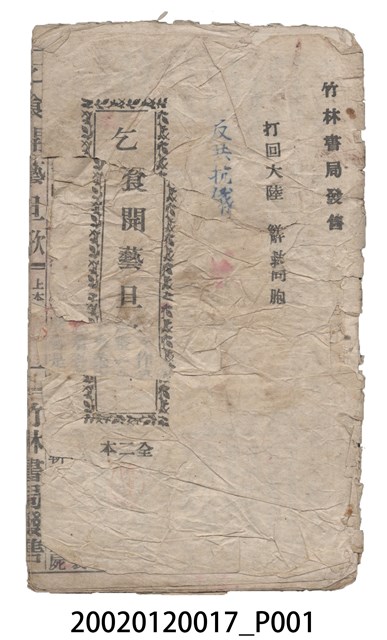 竹林書局發售
打回大陸 解救同胞
反共抗俄
乞食開藝旦
全二本
乞食開藝旦歌
上本
竹林書局發售
20020120017_P001